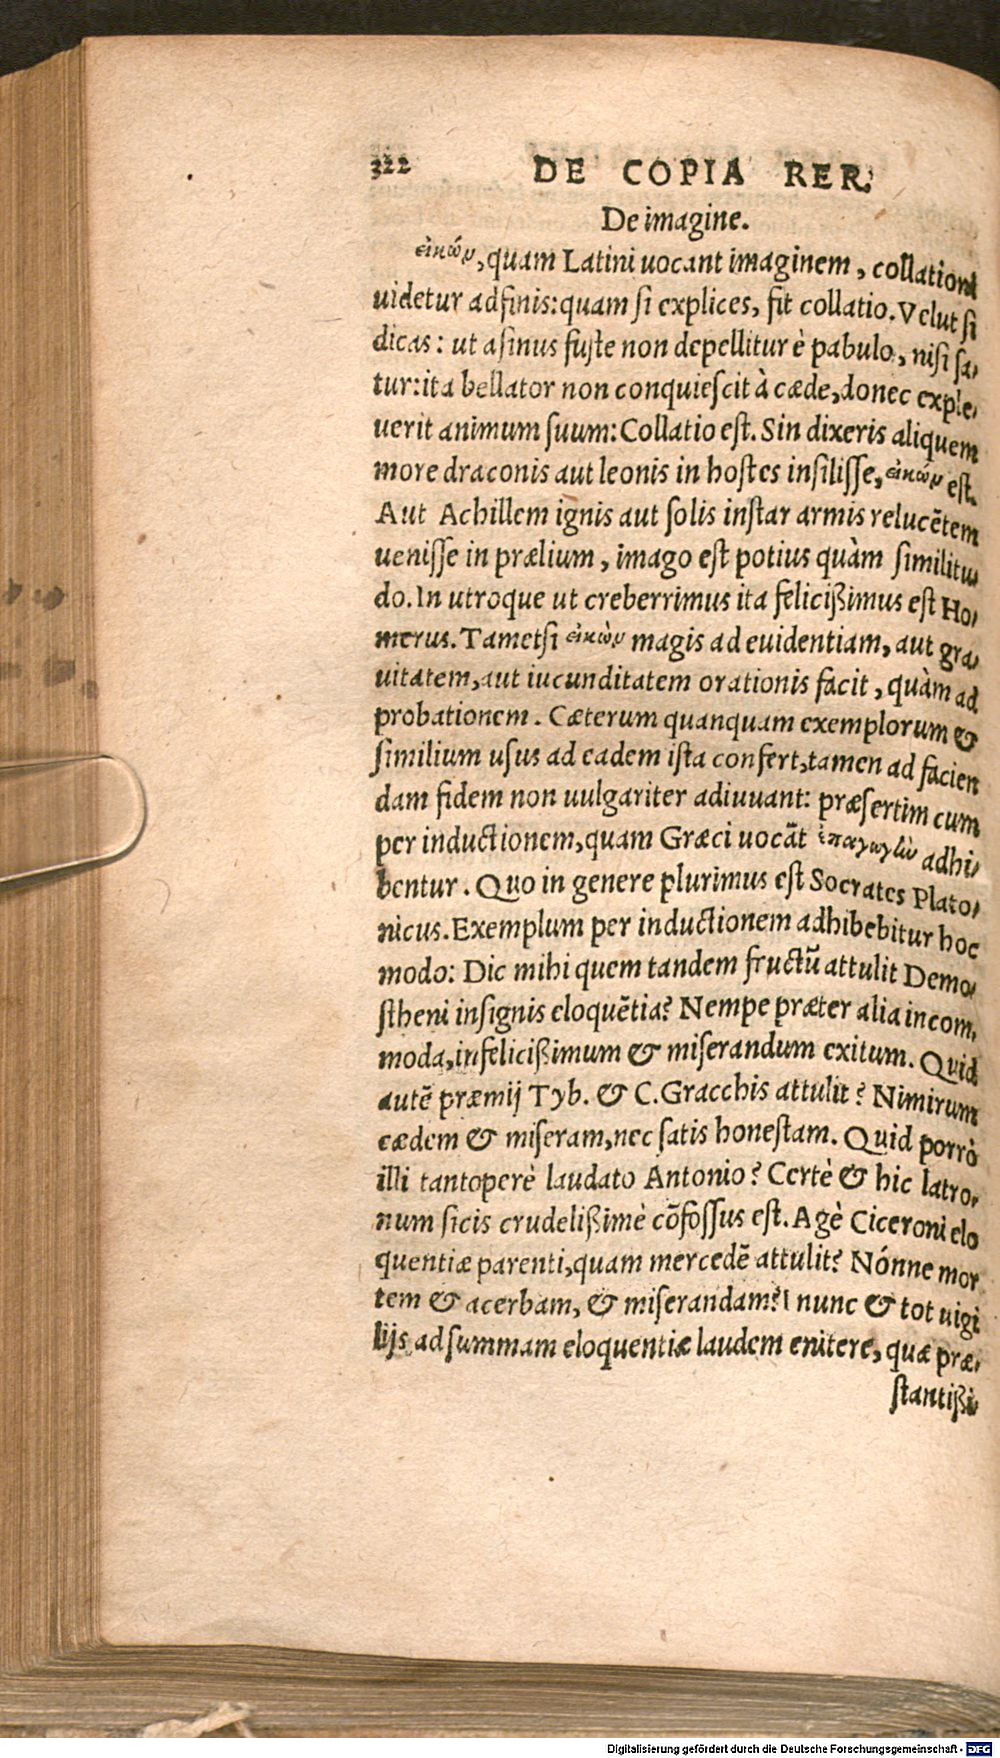 322 DE COPIA RER.
De imagine.
εἰκών, quam Latini uocant imaginem, collationi
uidetur adfinis: quam si explices, fit collatio. Velut si
dicas: ut asinus fuste non depellitur è pabulo, nisi sa-
tur: ita bellator non conquiescit à cæde, donec exple-
uerit animum suum: Collatio est. Sin dixeris aliquem
more draconis aut leonis in hostes insilisse, εἰκών est.
Aut Achillem ignis aut solis instar armis relucētem
uenisse in prælium, imago est potius quàm similitu-
do. In utroque ut creberrimus ita felicißimus est Ho-
merus. Tametsi εἰκὼν magis ad euidentiam, aut gra-
uitatem, aut iucunditatem orationis facit, quàm ad
probationem. Cæterum quanquam exemplorum &
similium usus ad eadem ista confert, tamen ad facien
dam fidem non uulgariter adiuuant: præsertim cum
per inductionem, quam Græci uocāt ἐπαγωγὴν adhi-
bentur. Quo in genere plurimus est Socrates Plato-
nicus. Exemplum per inductionem adhibebitur hoc
modo: Dic mihi quem tandem fructū attulit Demo-
stheni insignis eloquētia? Nempe præter alia incom-
moda, infelicißimum & miserandum exitum. Quid
autē præmij Tyb. & C. Gracchis attulit? Nimirum
cædem & miseram, nec satis honestam. Quid porrò
illi tantoperè laudato Antonio? Certè & hic latro-
num sicis crudelißimè cōfossus est. Agè Ciceroni elo
quentiæ parenti, quam mercedē attulit? Nónne mor
tem & acerbam, & miserandam? I nunc & tot uigi
lijs ad summam eloquentiæ laudem enitere, quæ præ-
stantißi-
Digitalisierung gefördert durch die Deutsche Forschungsgemeinschaft - DFG